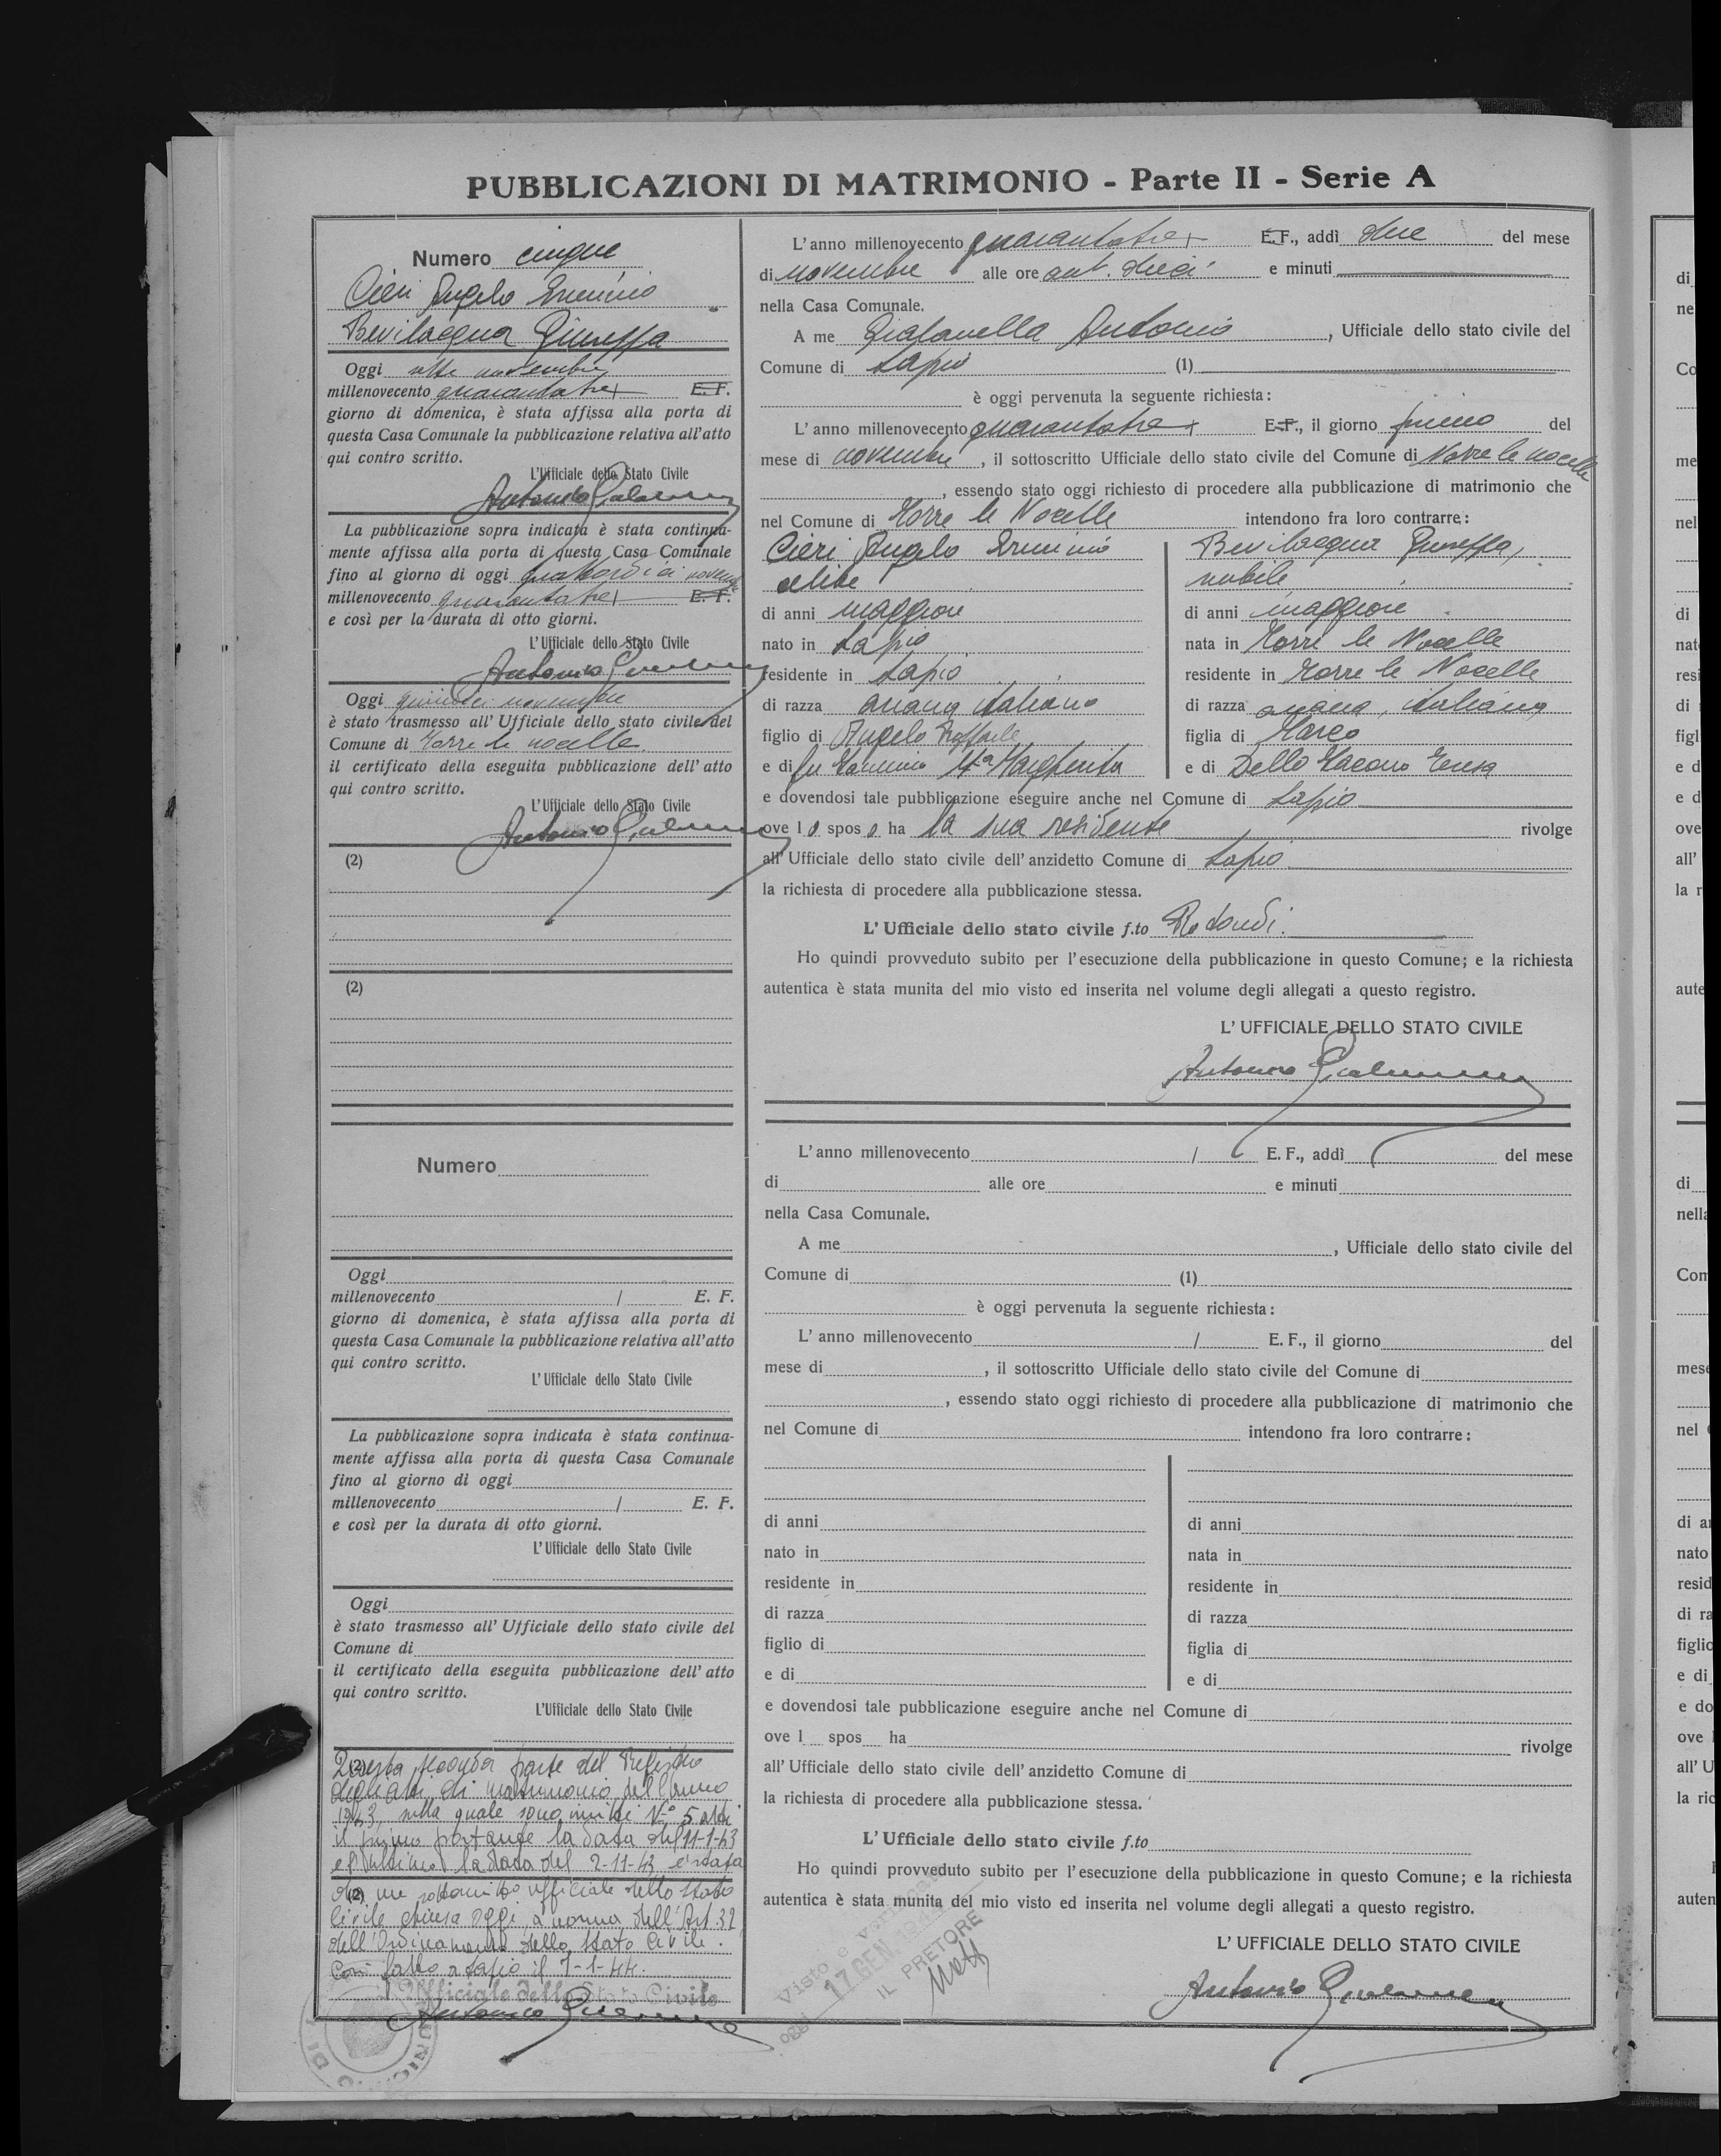 PUBBLICAZIONI DI MATRIMONIO - Parte II - Serie A
Numero cinque
Cieri Angelo Erminio
Bevilacqua Giuseppa
Oggi sette novembre
millenovecento quarantatre E. F.
giorno di domenica, è stata affissa alla porta di
questa Casa Comunale la pubblicazione relativa all'atto
qui contro scritto.
L'Ufficiale dello Stato Civile
Antonio
La pubblicazione sopra indicata è stata continua-
mente affissa alla porta di questa Casa Comunale
fino al giorno di oggi quattordici novembre
millenovecento quarantatre E. F.
e così per la durata di otto giorni.
L'Ufficiale dello Stato Civile
Antonio
Oggi quindici novembre
è stato trasmesso all' Ufficiale dello stato civile del
Comune di Torre le nocelle
il certificato della eseguita pubblicazione dell' atto
qui contro scritto.
L'Ufficiale dello Stato Civile
Antonio
(2)
(2)
L'anno millenovecento quarantatre E.F., addì due del mese
di novembre alle ore ant. dieci e minuti
nella Casa Comunale.
A me Antonio, Ufficiale dello stato civile del
Comune di Lapio (1)
è oggi pervenuta la seguente richiesta:
L' anno millenovecento quarantatre E.F., il giorno primo del
mese di novembre, il sottoscritto Ufficiale dello stato civile del Comune di Torre le nocelle
, essendo stato oggi richiesto di procedere alla pubblicazione di matrimonio che
nel Comune di Torre le Nocelle intendono fra loro contrarre:
Cieri Angelo Erminio
celibe
di anni maggiore
nato in Lapio
residente in Lapio
di razza ariana italiana
figlio di Angelo Raffaele
e di fu Ma Margherita
Bevilacqua Giuseppa,
nubile
di anni maggiore
nata in Torre le Nocelle
residente in Torre le Nocelle
di razza ariana, italiana
figlia di Marco
e di Dello Iacono Teresa
e dovendosi tale pubblicazione eseguire anche nel Comune di Lapio
ove lo sposo ha la sua residenza rivolge
all' Ufficiale dello stato civile dell' anzidetto Comune di Lapio
la richiesta di procedere alla pubblicazione stessa.
L' Ufficiale dello stato civile f.to Rotondi.
Ho quindi provveduto subito per l'esecuzione della pubblicazione in questo Comune; e la richiesta
autentica è stata munita del mio visto ed inserita nel volume degli allegati a questo registro.
L' UFFICIALE DELLO STATO CIVILE
Antonio
Numero
Oggi
millenovecento / E. F.
giorno di domenica, è stata affissa alla porta di
questa Casa Comunale la pubblicazione relativa all'atto
qui contro scritto.
L'Ufficiale dello Stato Civile
La pubblicazione sopra indicata è stata continua-
mente affissa alla porta di questa Casa Comunale
fino al giorno di oggi
millenovecento / E. F.
e così per la durata di otto giorni.
L'Ufficiale dello Stato Civile
Oggi
è stato trasmesso all' Ufficiale dello stato civile del
Comune di
il certificato della eseguita pubblicazione dell' atto
qui contro scritto.
L'Ufficiale dello Stato Civile
(2)
Questa seconda parte del Registro
degli atti di matrimonio dell'anno
1943, nella quale sono inscritti No 5 atti
il primo portante la data dell'11-1-43
e l'ultimo la data del 2-11-43 è stata
(2)
da me sottoscritto ufficiale dello stato
civile chiusa oggi a norma dell'Art. 32
dell'Ordinamento dello Stato Civile.
Così fatto a Lapio il 7-1-44.
L'Ufficiale dello Stato Civile
Antonio
L'anno millenovecento / E. F., addì del mese
di alle ore e minuti
nella Casa Comunale.
A me , Ufficiale dello stato civile del
Comune di (1)
è oggi pervenuta la seguente richiesta:
L' anno millenovecento / E. F., il giorno del
mese di , il sottoscritto Ufficiale dello stato civile del Comune di
, essendo stato oggi richiesto di procedere alla pubblicazione di matrimonio che
nel Comune di intendono fra loro contrarre:
di anni
nato in
residente in
di razza
figlio di
e di
di anni
nata in
residente in
di razza
figlia di
e di
e dovendosi tale pubblicazione eseguire anche nel Comune di
ove l spos ha rivolge
all' Ufficiale dello stato civile dell'anzidetto Comune di
la richiesta di procedere alla pubblicazione stessa.
L' Ufficiale dello stato civile f.to
Ho quindi provveduto subito per l'esecuzione della pubblicazione in questo Comune; e la richiesta
autentica è stata munita del mio visto ed inserita nel volume degli allegati a questo registro.
L' UFFICIALE DELLO STATO CIVILE
Antonio
Visto e
oggi 17 GEN.
IL PRETORE